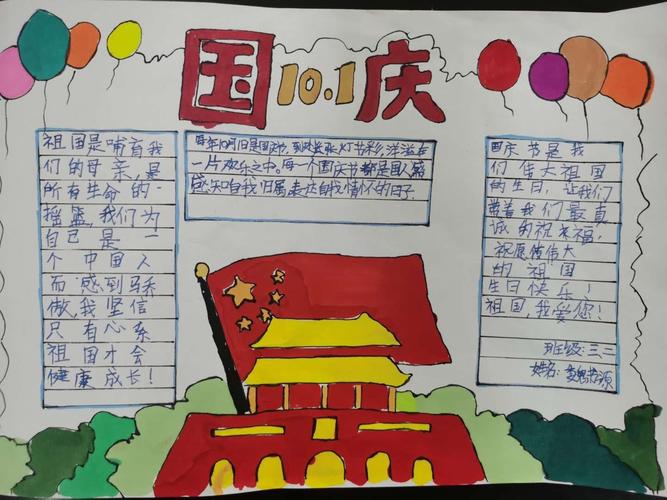 国 10.1 庆
祖国是哺育我
们的母亲,是
所有生命的
摇篮,我们为
自己是一
个中国人
而感到骄
傲,我坚信
只有心系
祖国才会
健康成长!
每年10月1日是国庆节,到处张灯节彩,洋溢在
一片欢乐之中。每一个国庆节都是国人
感知自我归属,表达自我情怀的日子.
国庆节是我
们伟大祖国
的生日,让我们
带着我们最真
诚的祝来福,
祝愿伟大
的祖国
生日快乐!
祖国,我爱您!
班级:三、二
姓名: